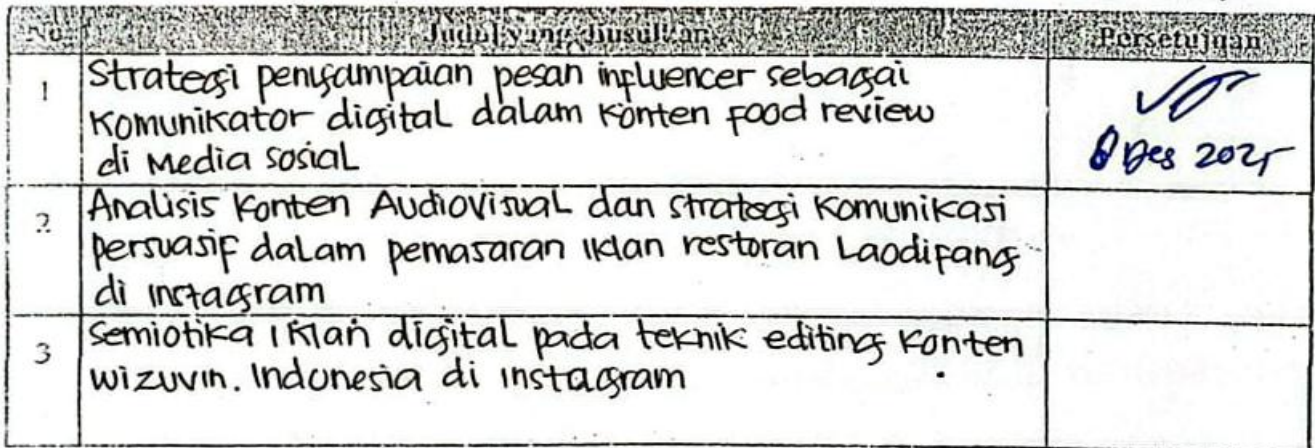 No. Judul yang diusulkan Persetujuan
1 Strategi penyampaian pesan influencer sebagai
Komunikator digital dalam Konten food review
di Media sosial
8 Des 2025
2. Analisis Konten Audiovisual dan strategi Komunikasi
persuasif dalam pemasaran Iklan restoran Laodifang
di instagram
3 Semiotika Iklan digital pada teknik editing Konten
wizuvin.Indonesia di instagram